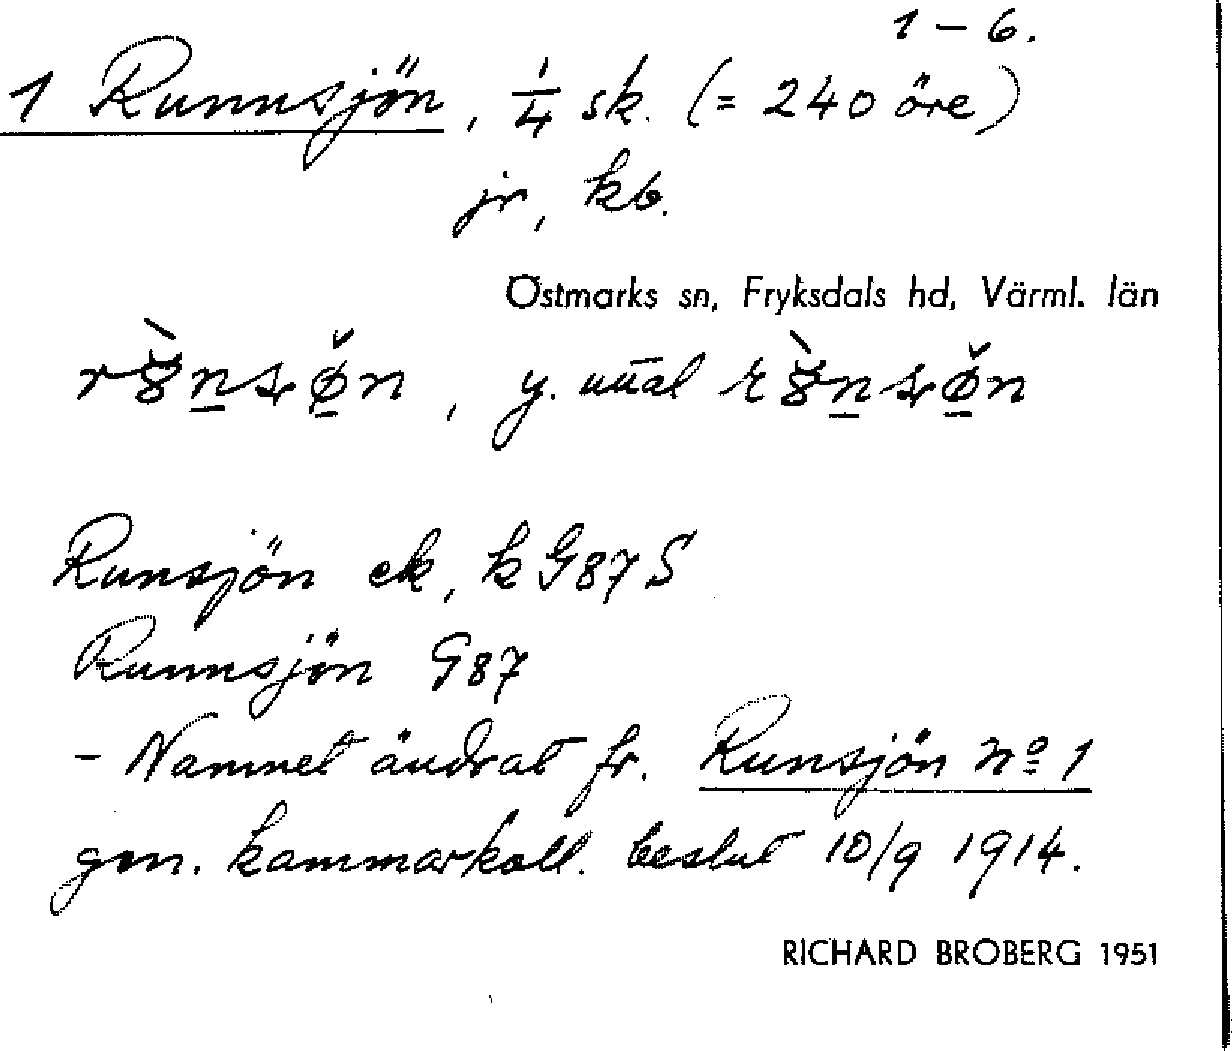 1 – 6.
1 Runnsjön, 1/4 sk. (= 240 öre)
jr, kb.
Östmarks sn, Fryksdals hd, Värml. län
, y. uttal
Runsjön ek, k G87 S
Runnsjön G87
– Namnet ändrat fr. Runsjön nº 1
gm. kammarkoll. beslut 10/9 1914.
RICHARD BROBERG 1951